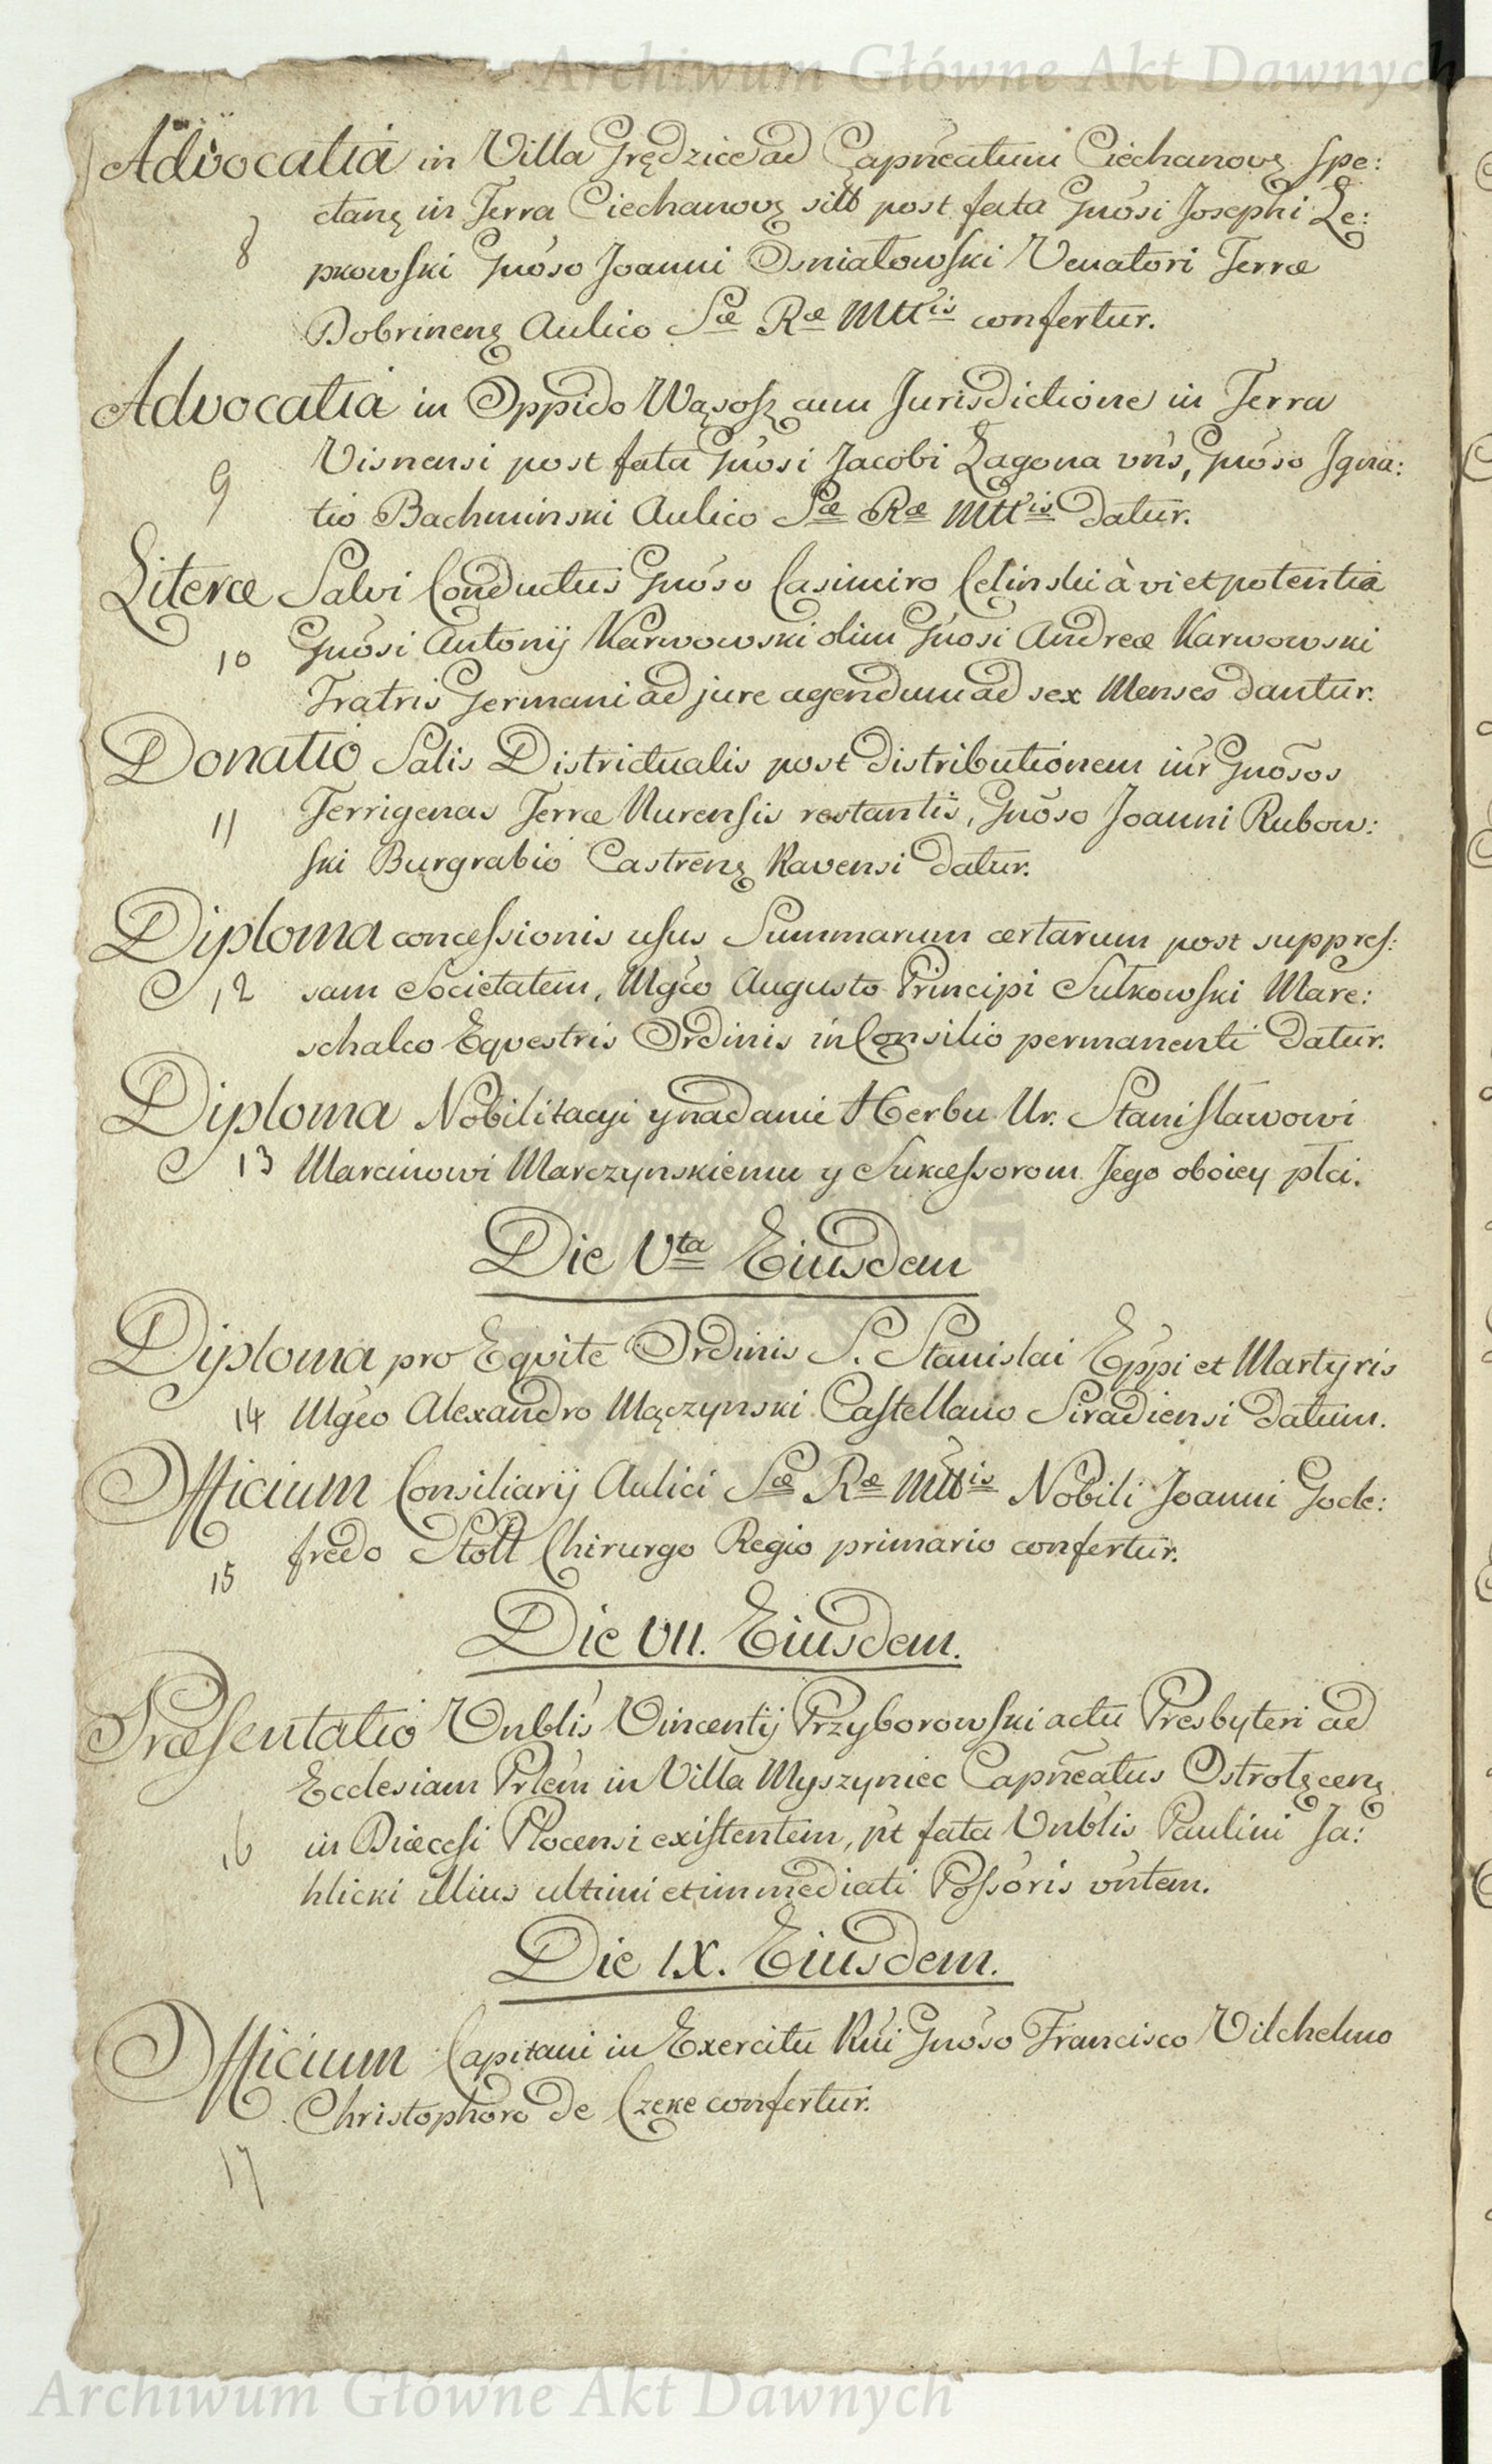 Archiwum Główne Akt Dawnych
Advocatia in Villa Grędzice ad Capnẽatum Ciechanovę spe:
ctanę in Terra Ciechanovę sitŏ post fata Gnõsi Josephi Łę:
8
pkowski Gnõso Joanni Osniatowski Venatori Terræ
Dobrinenę Aulico Sæ Ræ Mttis confertur.
Advocatia in Oppido Wąsosz cum Jurisdictione in Terra
Visnensi post fata Gnõsi Jacobi Łagona vñs, Gnõso Igna:
9
tio Bachminski Aulico Sæ Ræ Mttis datur.
Literæ Salvi Conductus Gnõso Casimiro Celinski à vi et potentia
Gnõsi Antonij Karwowski olim Gnõsi Andreæ Karwowski
10
Fratris Germani ad jure agendum ad sex Menses dantur.
Donatio Salis Districtualis post distributionem iñr Gnõsos
Terrigenas Terræ Nurensis restantis, Gnõso Joanni Rubow:
11
ski Burgrabio Castrenę Ravensi datur.
Diploma concessionis usus Summarum certarum post suppres:
12 sam Societatem, Mgco Augusto Principi Sułkowski Mare:
schalco Eqvestris Ordinis in Consilio permanenti datur.
Diploma Nobilitacyi y nadanie Herbu Ur. Stanisławowi
13 Marcinowi Marczynskiemu y Sukcessorom Jego oboiey płci.
Die Vta Eiusdem
Diploma pro Eqvite Ordinis S. Stanislai Eppi et Martyris
14 Mgco Alexandro Mączynski Castellano Siradiensi datum.
Officium Consiliarij Aulici Sæ Ræ Mttis Nobili Joanni Gode:
fredo Stoll Chirurgo Regio primario confertur.
15
Die VII. Eiusdem.
Præsentatio Vnblis Vincentij Przyborowski actu Presbyteri ad
Ecclesiam Prlem in Villa Myszyniec Capnẽatus Ostrołęcenę
16 in Diæcesi Plocensi existentem, pt fata Vnblis Paulini Ja:
hlicki illius ultimi et immediati Possõris vñtem.
Die IX. Eiusdem.
Officium Capitani in Exercitu Rni Gnõso Francisco Vilchelmo
Christophoro de Czeke confertur.
17
Archiwum Główne Akt Dawnych